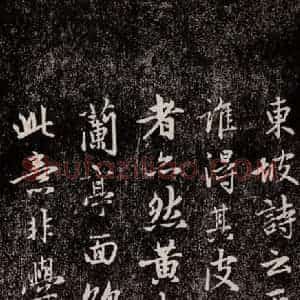 東坡詩云
誰得其皮
者亦然黃
蘭亭面欲
此意非學